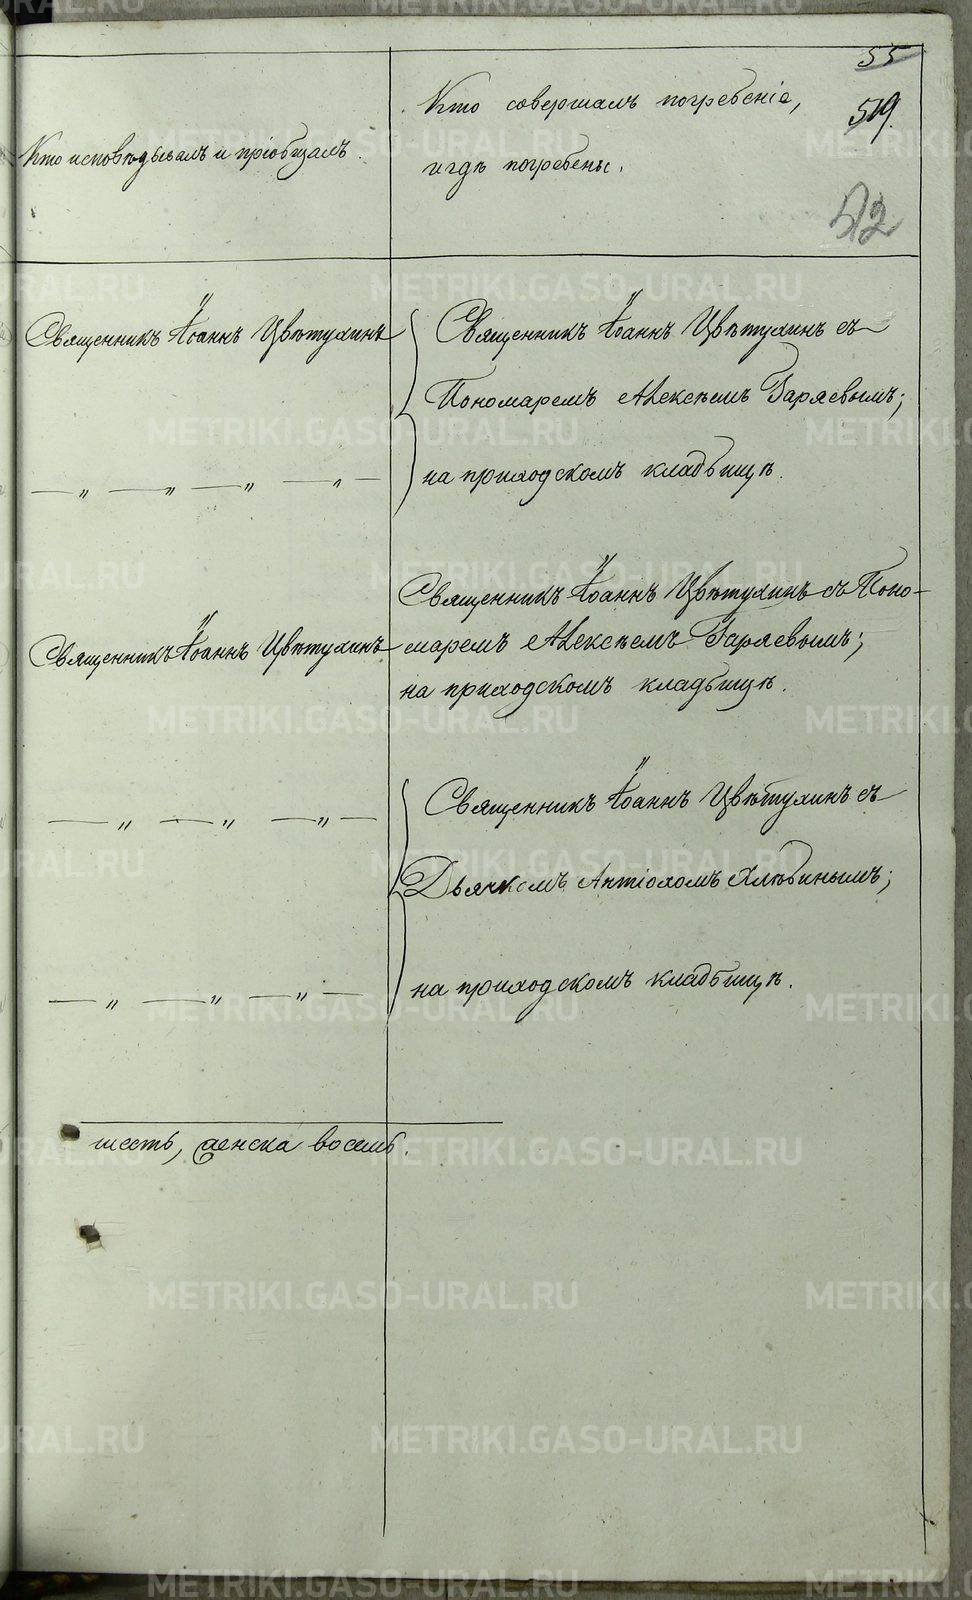 55
519.
512
Кто исповѣдывалъ и пріобщалъ.
Кто совершалъ погребеніе,
и гдѣ погребены.
Священникъ Іоаннъ Цвѣтухинъ
Священникъ Іоаннъ Цвѣтухинъ съ
Пономаремъ Алексѣемъ Гаряевымъ;
на приходскомъ кладбищѣ.
— „ — „ — „ — „ —
Священникъ Іоаннъ Цвѣтухинъ
Священникъ Іоаннъ Цвѣтухинъ съ Поно-
маремъ Алексѣемъ Гаряевымъ;
на приходскомъ кладбищѣ.
— „ — „ — „ —
Священникъ Іоаннъ Цвѣтухинъ съ
Дьячкомъ Антіохомъ Хлюбинымъ;
— „ — „ — „ —
на приходскомъ кладбищѣ.
шесть, женска восемь.
METRIKI.GASO-URAL.RU